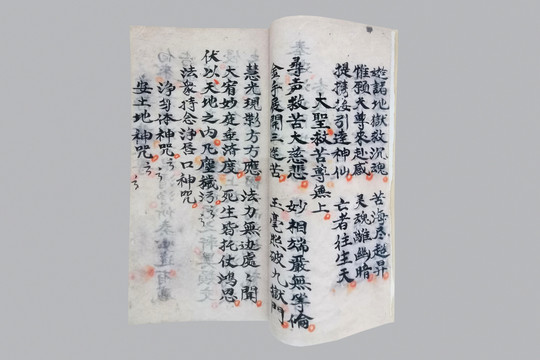 遊諸地獄救沉魂 苦海尽超昇
惟願天尊來赴感 灵魂離幽暗
提携接引達神仙 亡者往生天
大聖救苦尊無上
尋声救苦大慈悲 妙相端嚴無等倫
金手展開三塗苦 玉毫照破九獄門
慧光現影方方應 法力無边處處聞
大宥妙夜垂濟度 死生皆托仗鴻恩
伏以天地之内凡塵穢污
法衆持念淨唇口神咒
淨身体神咒
安土地神咒